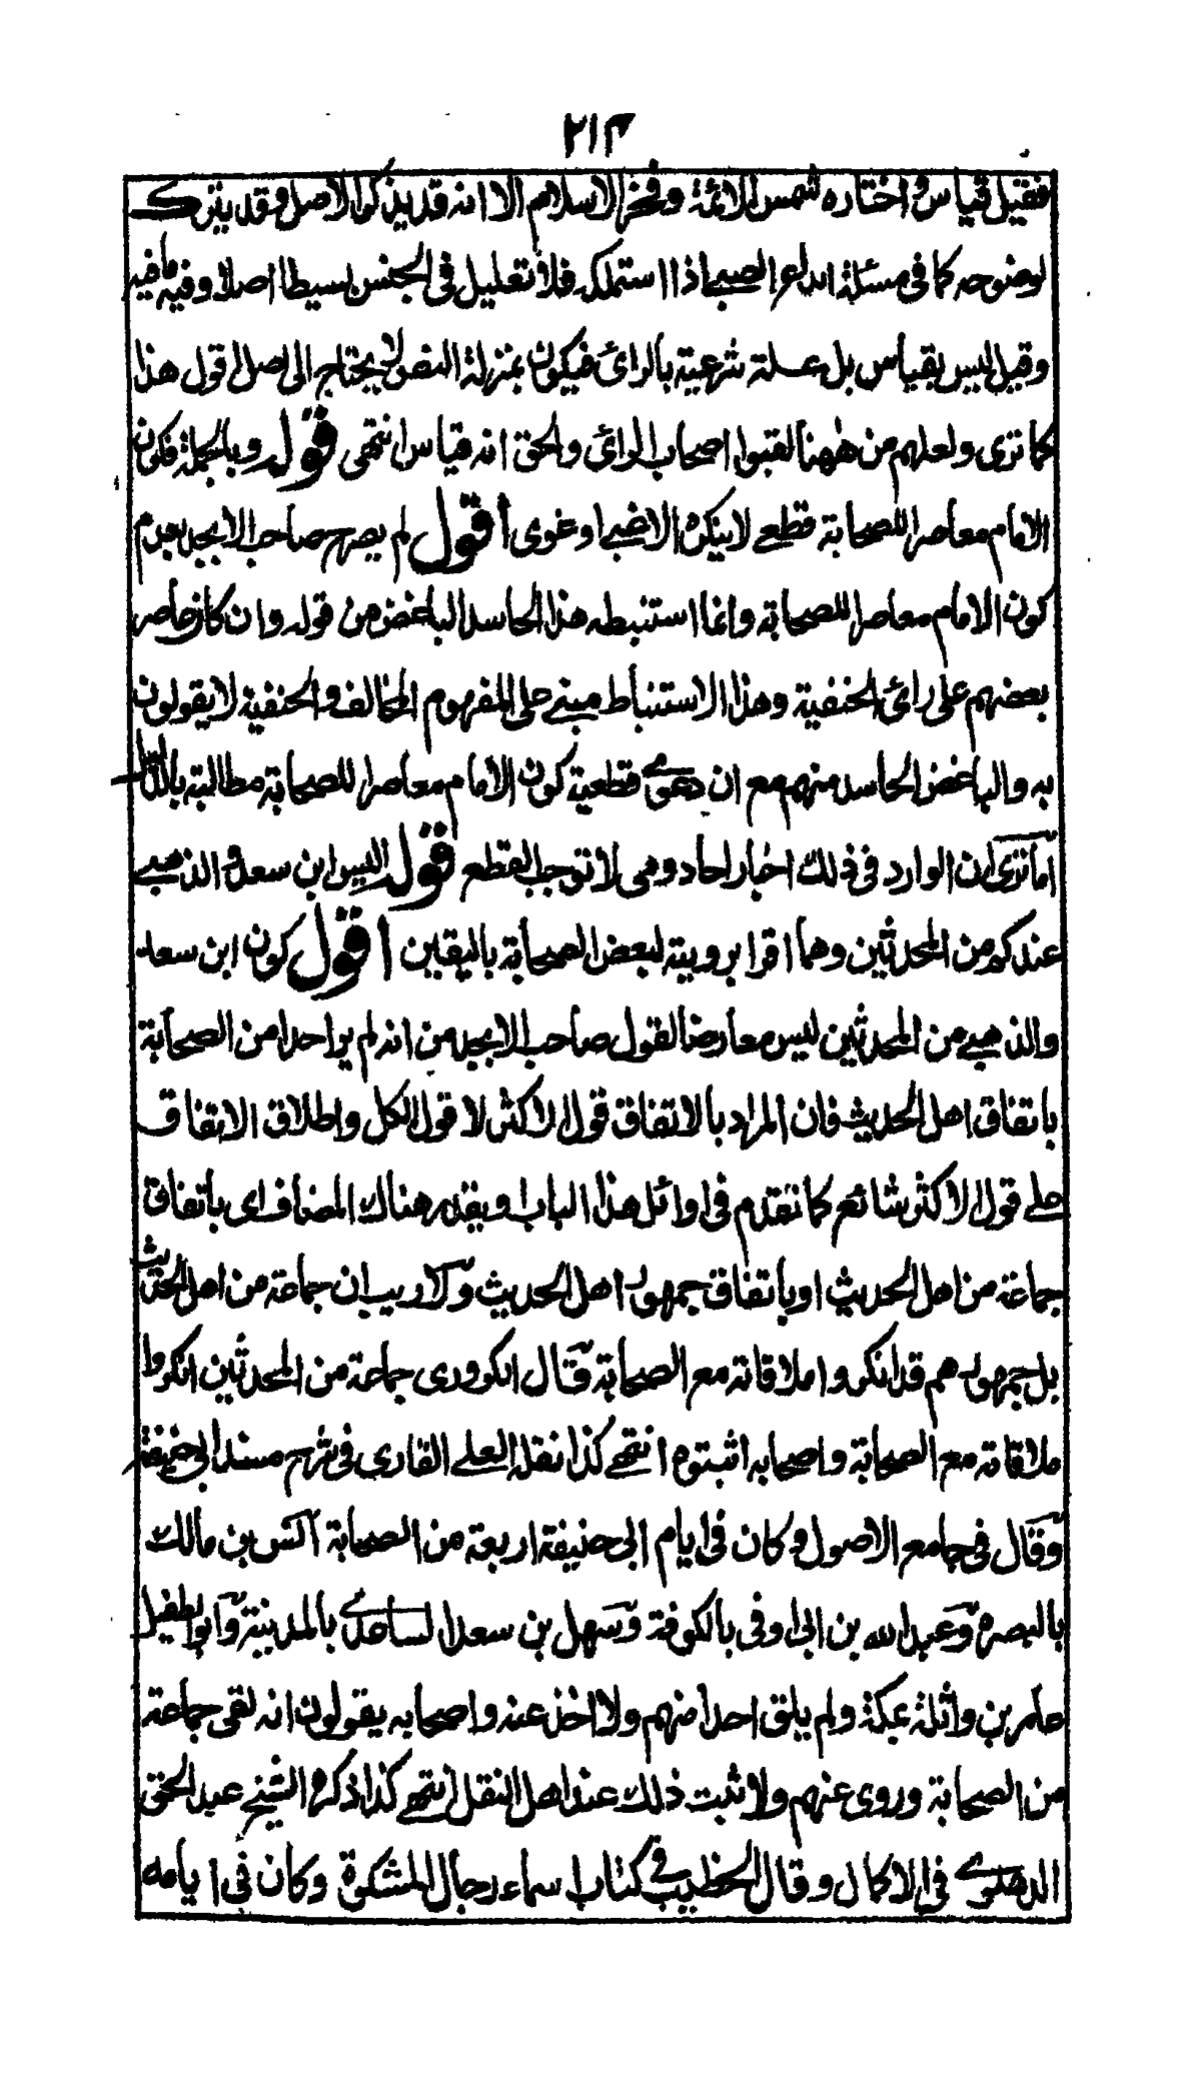 ٢١٣
فقيل قياس واختاره شمس الائمة وفخر الاسلام الا انه قد يذكر الاصل وقد يترك
لوضوحه كما فى مسئلة ايداع الصبى اذا استملك فلا تعليل فى الجنس بسيطا اصلا وفيه ما فيه
وقيل ليس بقياس بل علة شرعية بالرائ فيكون بمنزلة النص لا يحتاج الى اصل اقول هذا
كما ترى ولعلهم من ههنا لقبوا اصحاب الرائ والحق انه قياس انتهى قوله وبالجملة فكون
الامام معاصرا للصحابة قطعے لا ينكره الا غبى او غوى أقول لم يصرح صاحب الابجد بعدم
كون الامام معاصرا للصحابة وانما استنبطه هذا الحاسد الباغض من قوله وان كان عاصر
بعضهم على رائ الحنفية وهذا الاستنباط مبنے على المفهوم المخالف والحنفية لا يقولون
به والباغض الحاسد منهم مع ان دعوى قطعية كون الامام معاصرا للصحابة مطالبة بالدليل
اما ترى ان الوارد فى ذلك اخبار احاد وهى لا توجب القطع قوله اليس ابن سعد والذهبے
عندكم من المحدثين وهما اقرا برويته لبعض الصحابة باليقين أقول كون ابن سعد
والذهبے من المحدثين ليس معارضا لقول صاحب الابجد من انه لم ير احدا من الصحابة
باتفاق اهل الحديث فان المراد بالاتفاق قول الاكثر لا قول الكل واطلاق الاتفاق
على قول الاكثر شائع كما تقدم فى اوائل هذا الباب ويقدر هناك المضاف اى باتفاق
جماعة من اهل الحديث او باتفاق جمهور اهل الحديث ولا ريب ان جماعة من اهل الحديث
بل جمهورهم قد انكروا ملاقاته مع الصحابة قال الكوورى جماعة من المحدثين انكروا
ملاقاته مع الصحابة واصحابه اثبتوه انتهے كذا نقله العلے القارى فى شرح مسند ابى حنيفة
وقال فى جامع الاصول وكان فى ايام ابى حنيفة اربعة من الصحابة انس بن مالك
بالبصرة وعبد الله بن ابى اوفى بالكوفة وسهل بن سعد الساعدى بالمدينة وابو الطفيل
عامر بن واثلة بمكة ولم يلق احدا منهم ولا اخذ عنه واصحابه يقولون انه لقى جماعة
من الصحابة وروى عنهم ولا ثبت ذلك عند اهل النقل انتهے كذا ذكره الشيخ عبد الحق
الدهلوى فى الاكمال وقال الخطيب فى كتاب اسماء رجال المشكوة وكان فى ايامه